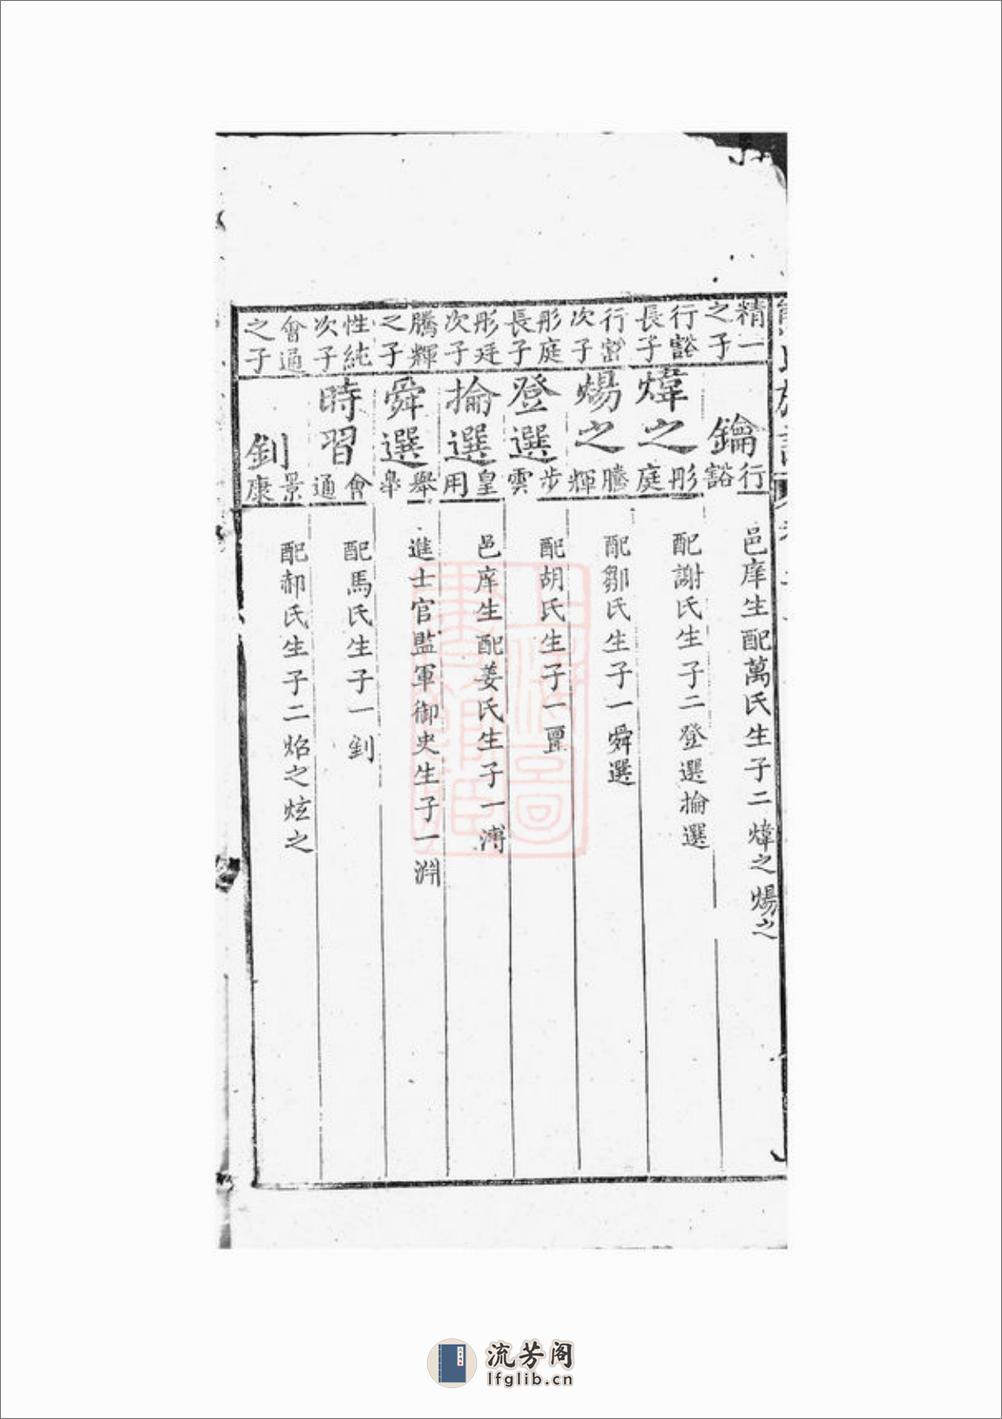 精一之子
鑰
行豁
邑庠生配萬氏生子二煒之煬之
行豁長子
煒之
彤庭
配謝氏生子二登選掄選
行豁次子
煬之
騰輝
配鄒氏生子一舜選
彤庭長子
登選
步雲
配胡氏生子一
彤廷次子
掄選
皇用
邑庠生配姜氏生子一溥
騰輝之子
舜選
舉皋
進士官監軍御史生子一淵
性純次子
時習
會通
配馬氏生子一釗
會通之子
釗
景康
配郝氏生子二焰之炫之
流芳阁
lfglib.cn